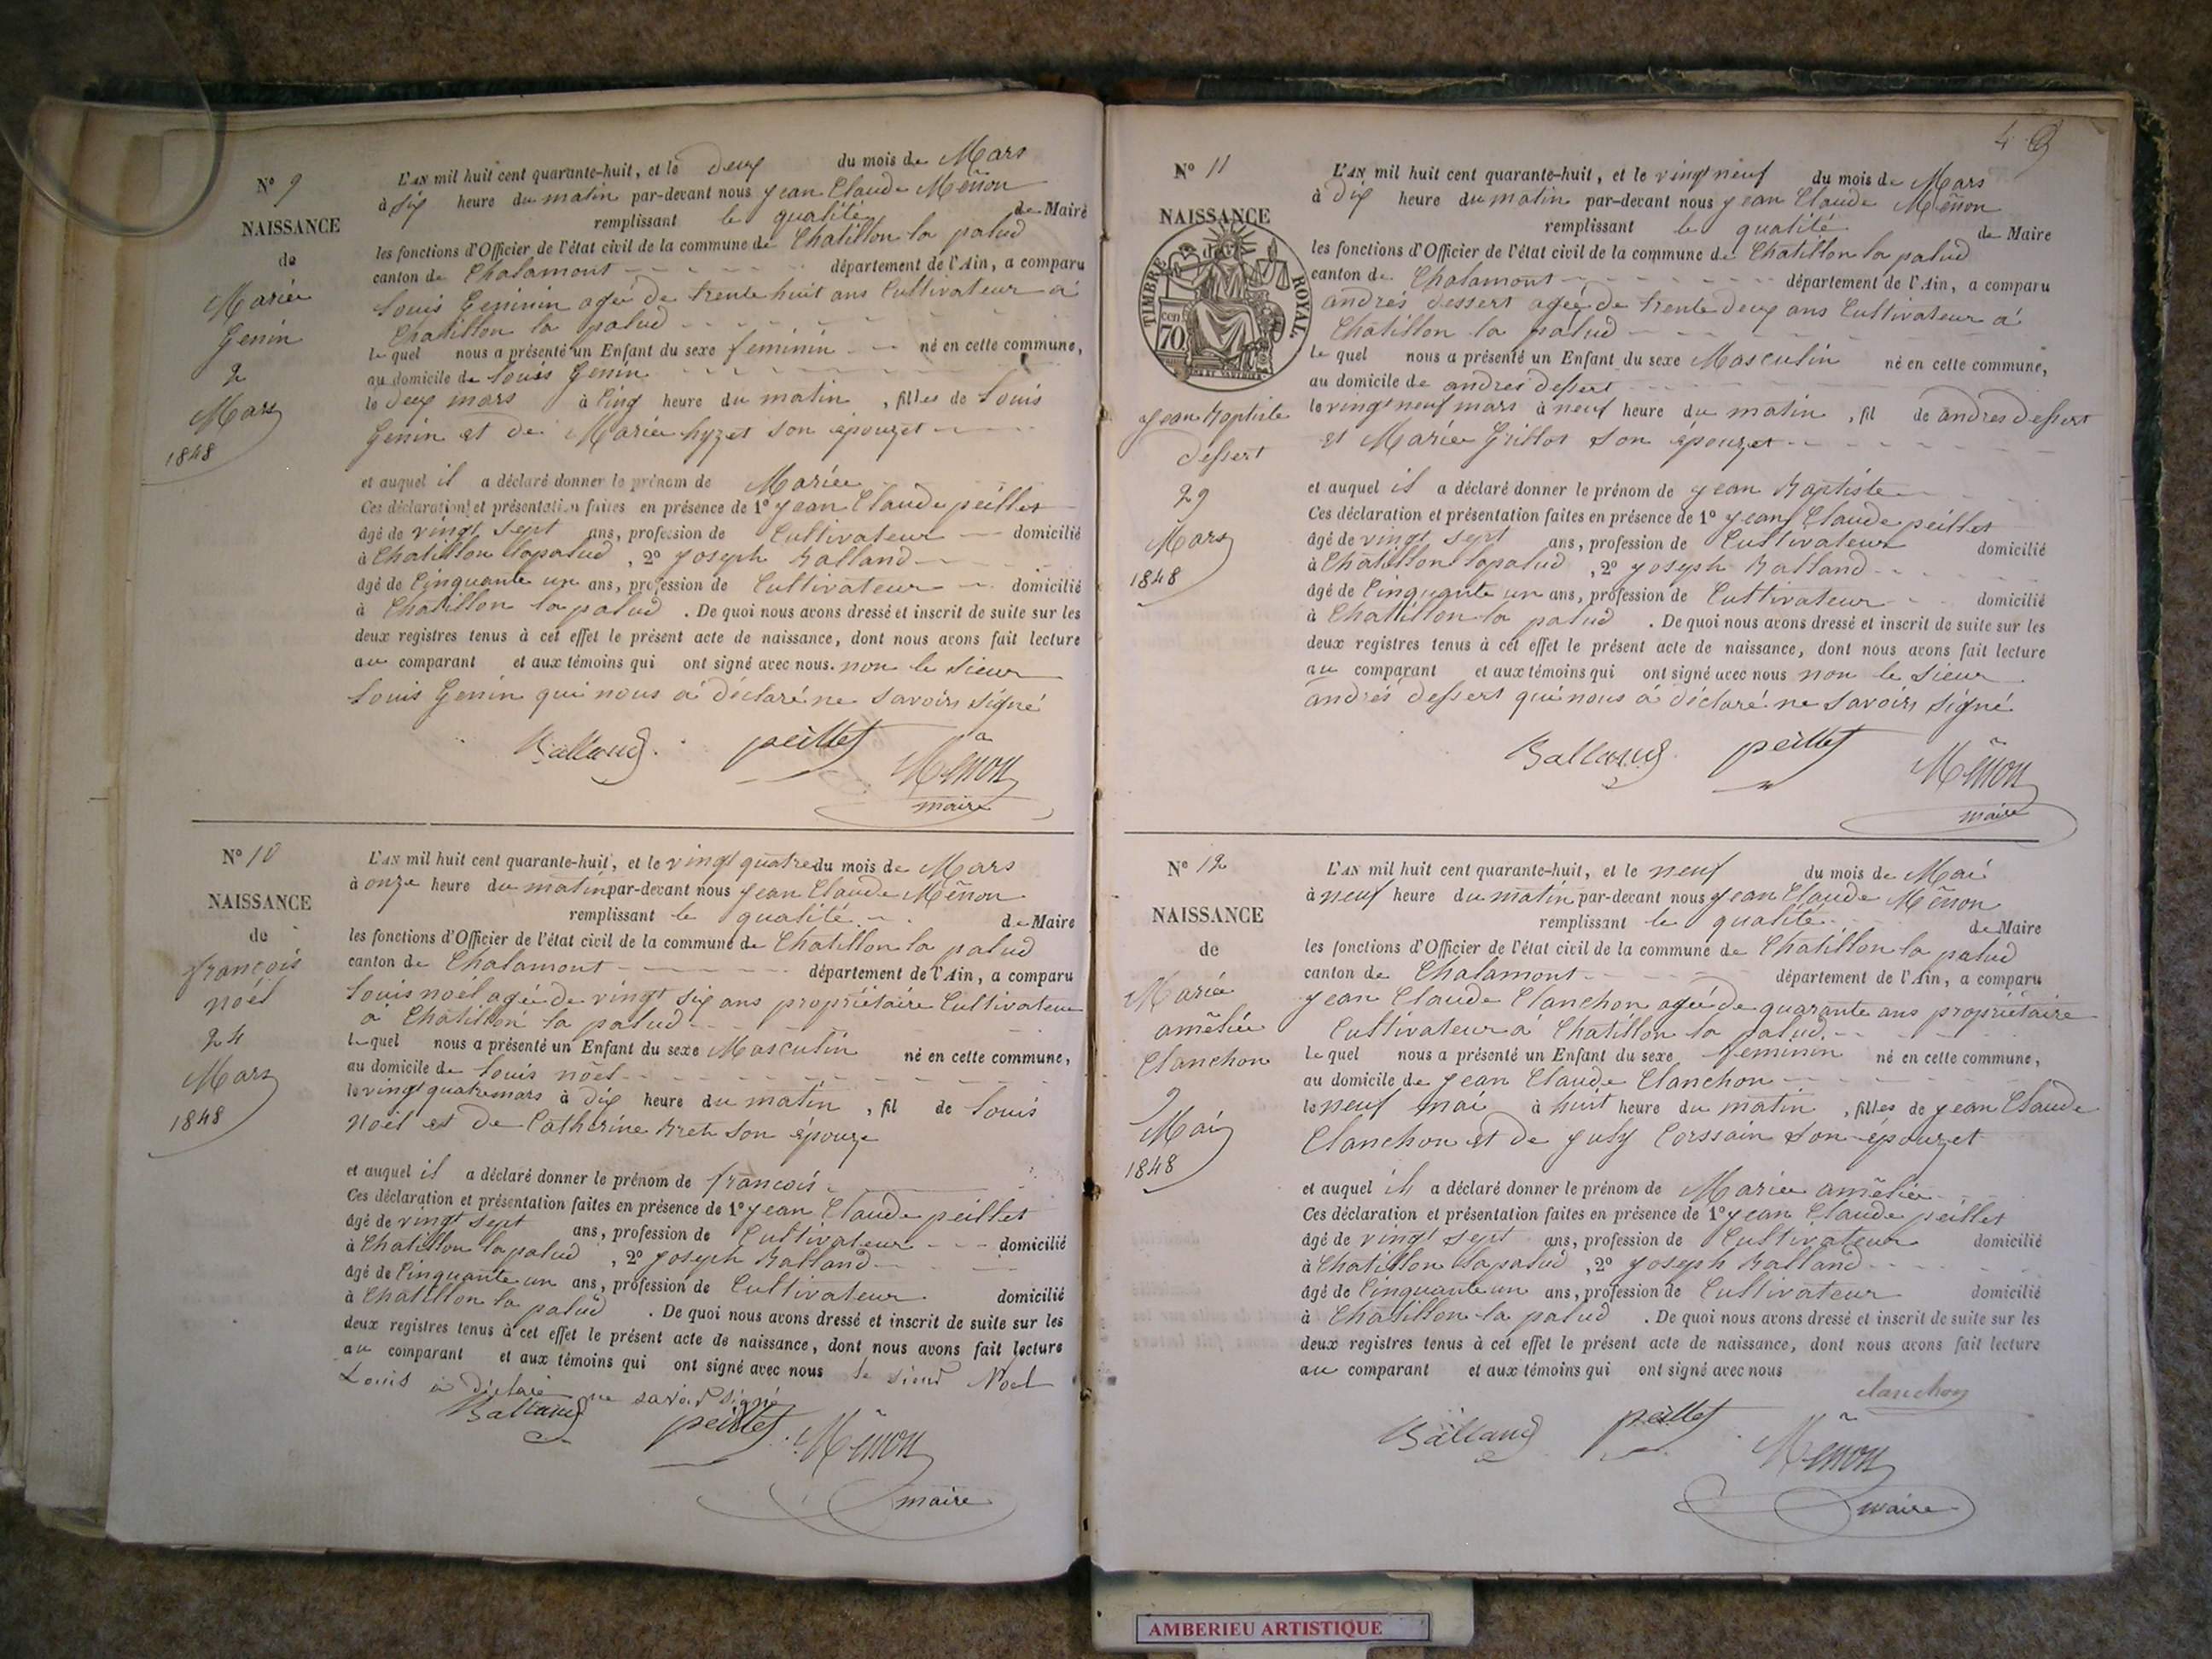 N° 9
NAISSANCE
de
Marie
Genin
2
Mars
1848
L'AN mil huit cent quarante-huit, et le deux du mois de Mars
à six heure du matin par-devant nous jean Claude Mênon
remplissant le qualité de Maire
les fonctions d'Officier de l'état civil de la commune de Chatillon la palud
canton de Chalamont département de l'Ain, a comparu
Louis Geninin agée de trente huit ans Cultivateur a
Chatillon la palud
le quel nous a présenté un Enfant du sexe feminin né en cette commune,
au domicile de Louis Genin
le deux mars à Cinq heure du matin, filles de Louis
Genin et de Marie hyzet son épouzet
et auquel il a déclaré donner le prénom de Mariée
Ces déclaration et présentation faites en présence de 1° jean Claude peillet
âgé de vingt sept ans, profession de Cultivateur domicilié
à Chatillon lapalud, 2° joseph Balland
âgé de Cinquante un ans, profession de Cultivateur domicilié
à Chatillon la palud. De quoi nous avons dressé et inscrit de suite sur les
deux registres tenus à cet effet le présent acte de naissance, dont nous avons fait lecture
au comparant et aux témoins qui ont signé avec nous. non le sieur
Louis Genin qui nous à déclaré ne savoir signé
Balland peillet Mênon
maire
N° 10
NAISSANCE
de
françois
noël
24
Mars
1848
L'AN mil huit cent quarante-huit, et le vingt quatre du mois de Mars
à onze heure du matin par-devant nous jean Claude Mênon
remplissant le qualité de Maire
les fonctions d'Officier de l'état civil de la commune de Chatillon la palud
canton de Chalamont département de l'Ain, a comparu
Louis noel agée de vingt six ans propriétaire Cultivateur
a Chatillon la palud
le quel nous a présenté un Enfant du sexe Masculin né en cette commune,
au domicile de Louis noël
le vingt quatre mars à dix heure du matin, fil de Louis
Noël et de Catherine Bret son épouze
et auquel il a déclaré donner le prénom de francois
Ces déclaration et présentation faites en présence de 1° jean Claude peillet
âgé de vingt sept ans, profession de Cultivateur domicilié
à Chatillon lapalud, 2° joseph Balland
âgé de Cinquante un ans, profession de Cultivateur domicilié
à Chatillon la palud. De quoi nous avons dressé et inscrit de suite sur les
deux registres tenus à cet effet le présent acte de naissance, dont nous avons fait lecture
au comparant et aux témoins qui ont signé avec nous le sieur Noel
Louis a déclaré ne savoir signé
Balland peillet Mênon
maire
N° 11
NAISSANCE
de
TIMBRE ROYAL
cen 70
jean Baptiste
dessert
29
Mars
1848
L'AN mil huit cent quarante-huit, et le vingt neuf du mois de Mars
à dix heure du matin par-devant nous jean Claude Mênon
remplissant le qualité de Maire
les fonctions d'Officier de l'état civil de la commune de Chatillon la palud
canton de Chalamont département de l'Ain, a comparu
andrés dessert agée de trente deux ans Cultivateur a
Chatillon la palud
le quel nous a présenté un Enfant du sexe Masculin né en cette commune,
au domicile de andres dessert
le vingt neuf mars à neuf heure du matin, fil de andres dessert
et Mariee Grillot son épouzet
et auquel il a déclaré donner le prénom de jean Baptiste
Ces déclaration et présentation faites en présence de 1° jean Claude peillet
âgé de vingt sept ans, profession de Cultivateur domicilié
à Chatillon lapalud, 2° joseph Balland
âgé de Cinquante un ans, profession de Cultivateur domicilié
à Chatillon la palud. De quoi nous avons dressé et inscrit de suite sur les
deux registres tenus à cet effet le présent acte de naissance, dont nous avons fait lecture
au comparant et aux témoins qui ont signé avec nous non le sieur
andrés dessert qui nous à déclaré ne savoir signé
Balland peillet Mênon
maire
N° 12
NAISSANCE
de
Mariée
amêliée
Clanchon
9
Mai
1848
L'AN mil huit cent quarante-huit, et le neuf du mois de Mai
à neuf heure du matin par-devant nous jean Claude Mênon
remplissant le qualité de Maire
les fonctions d'Officier de l'état civil de la commune de Chatillon la palud
canton de Chalamont département de l'Ain, a comparu
jean Claude Clanchon agée de quarante ans propriétaire
Cultivateur a Chatillon la palud
le quel nous a présenté un Enfant du sexe feminin né en cette commune,
au domicile de jean Claude Clanchon
le neuf mai à huit heure du matin, filles de jean Claude
Clanchon et de july Corssain son épouzet
et auquel il a déclaré donner le prénom de Mariee amêliée
Ces déclaration et présentation faites en présence de 1° jean Claude peillet
âgé de vingt sept ans, profession de Cultivateur domicilié
à Chatillon lapalud, 2° joseph Balland
âgé de Cinquante un ans, profession de Cultivateur domicilié
à Chatillon la palud. De quoi nous avons dressé et inscrit de suite sur les
deux registres tenus à cet effet le présent acte de naissance, dont nous avons fait lecture
au comparant et aux témoins qui ont signé avec nous
clanchon
Balland peillet Mênon
maire
AMBERIEU ARTISTIQUE